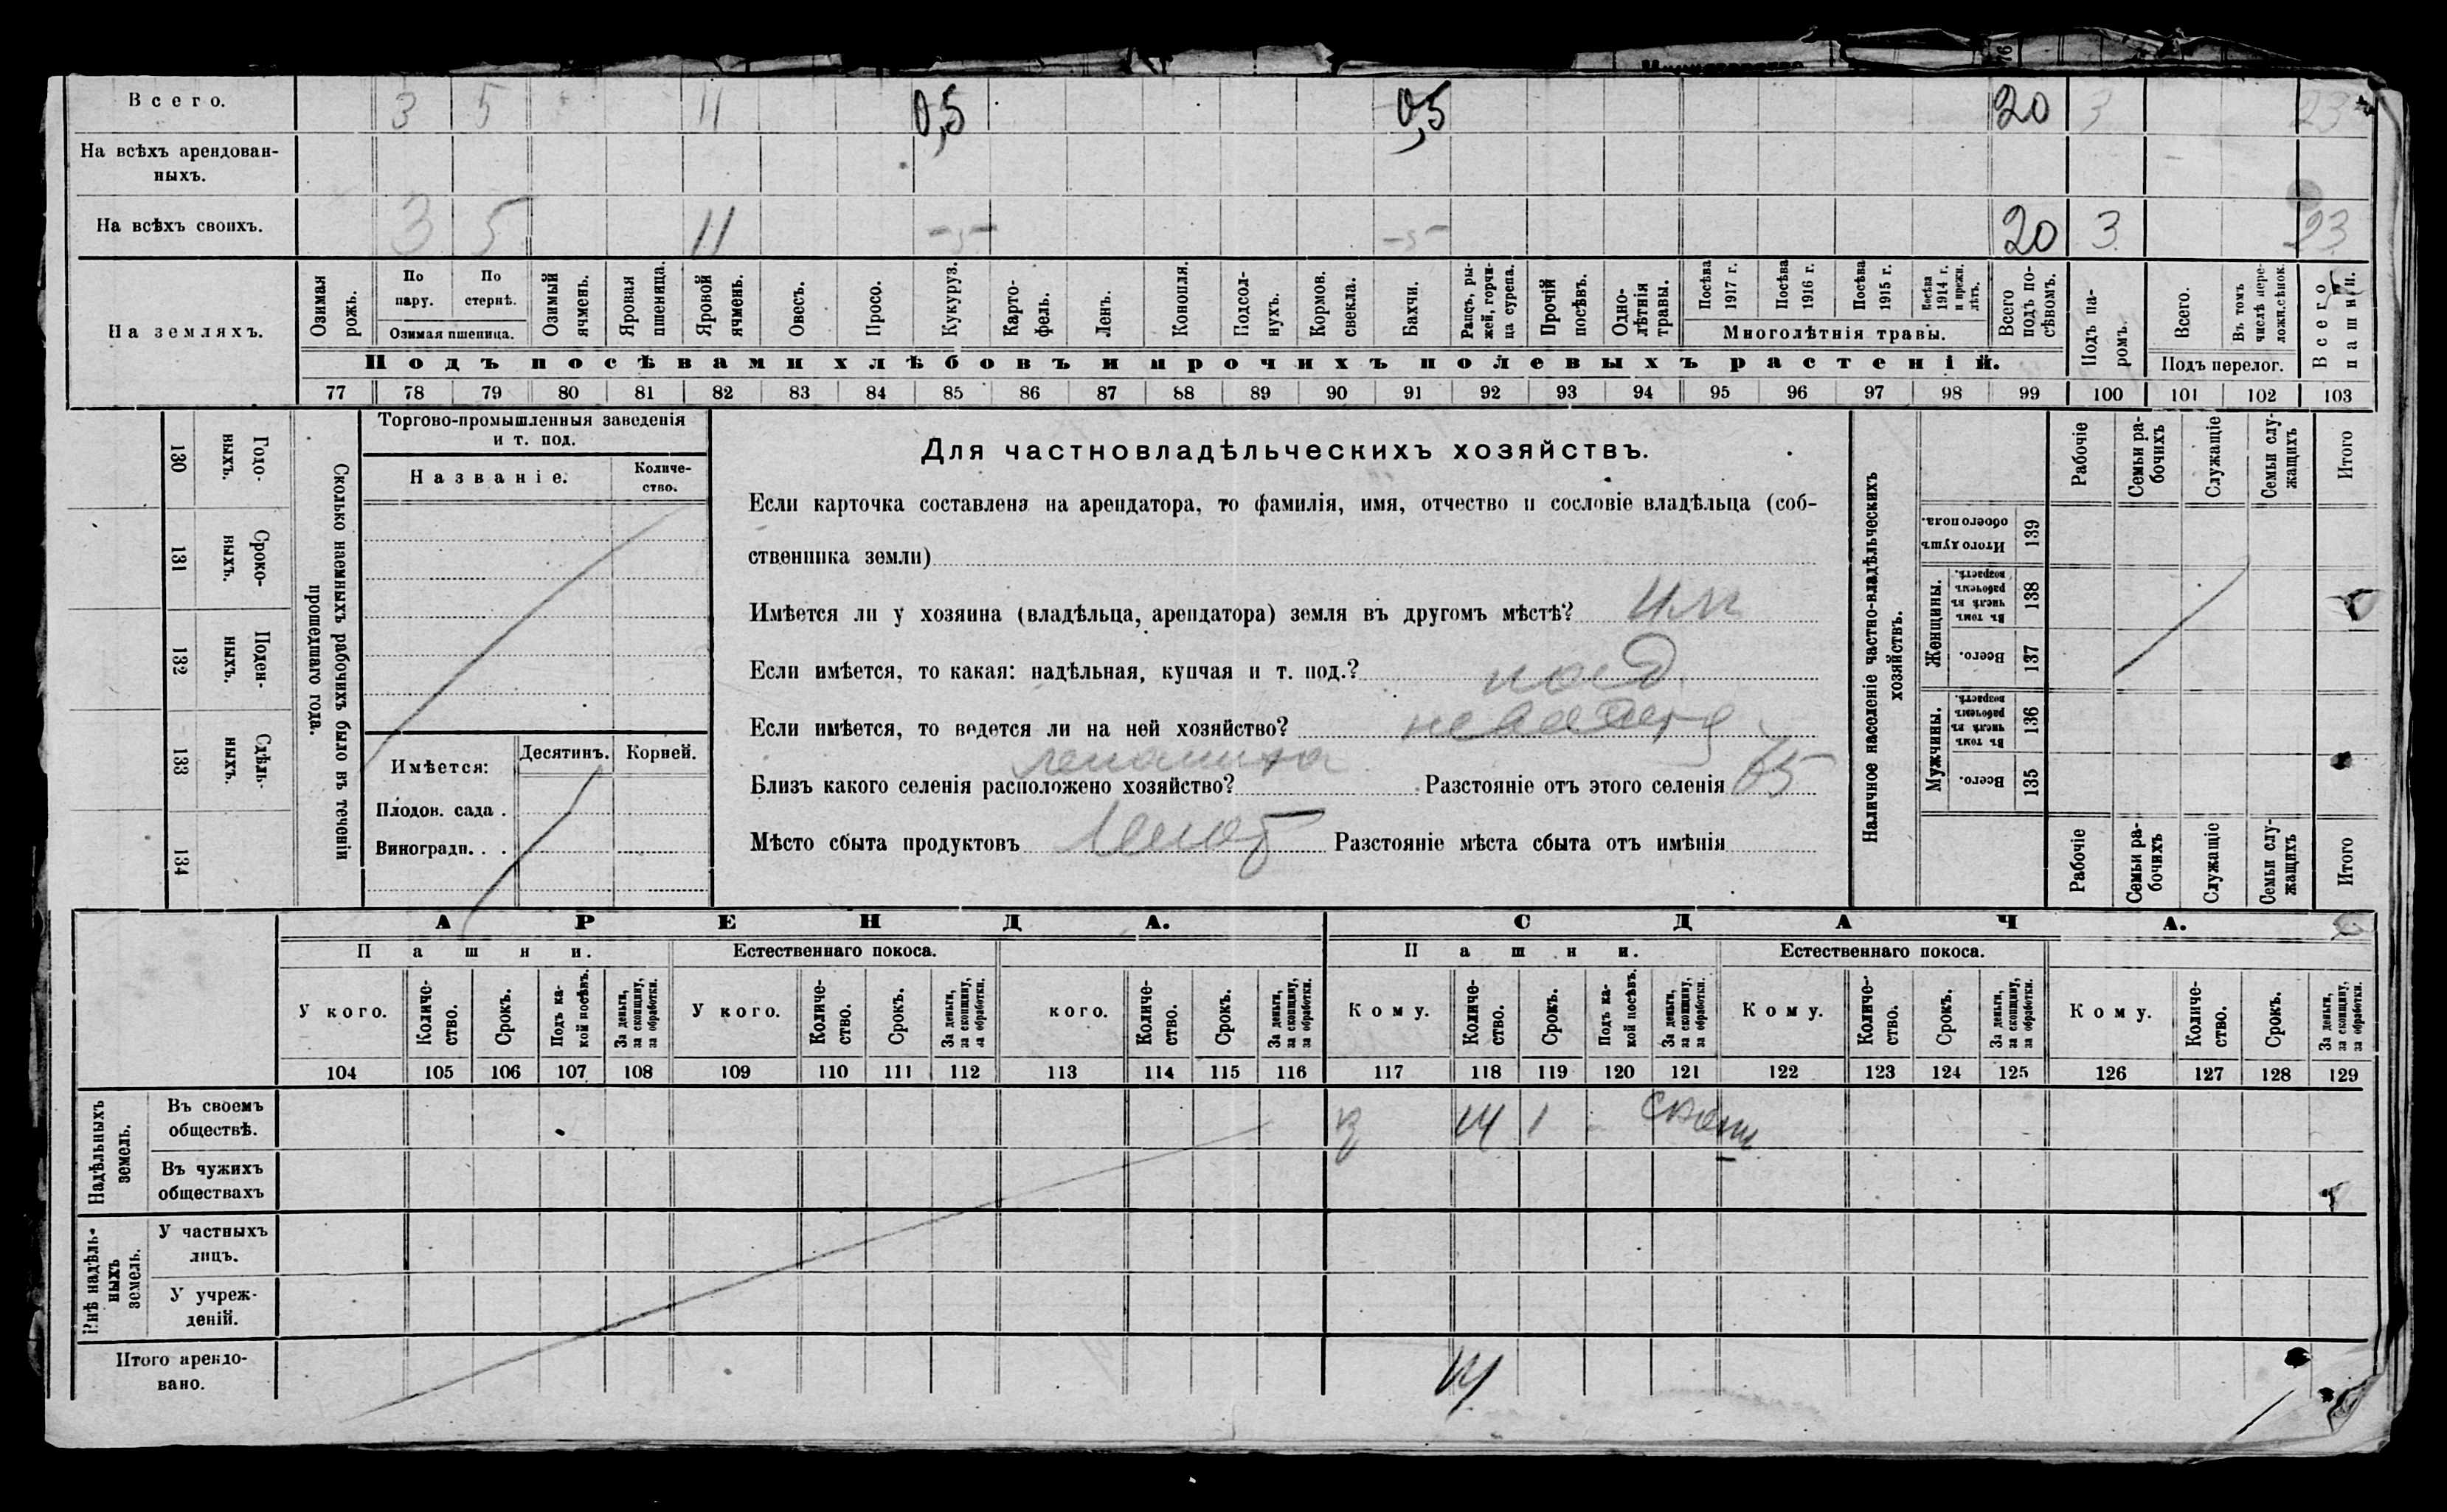 Всего. 3 5 11 0,5 0,5 20 3 23
На всѣхъ арендован-
ныхъ.
На всѣхъ своихъ. 3 5 11 -5- -5- 20 3 23
На земляхъ.
Озимая рожь.
По пару.
По стернѣ.
Озимая пшеница.
Озимый ячмень.
Яровая пшеница.
Яровой ячмень.
Овесъ.
Просо.
Кукуруз.
Карто-
фель.
Ленъ.
Конопля.
Подсол-
нухъ.
Кормов. свекла.
Бахчи.
Рапсъ, ры-
жей, горчи-
ца сурепа.
Прочій посѣвъ.
Одно-
лѣтнія травы.
Посѣва 1917 г.
Посѣва 1916 г.
Посѣва 1915 г.
Посѣва 1914 г. и прежн. лѣтъ.
Многолѣтнія травы.
Всего подъ по-
сѣвомъ.
Подъ па-
ромъ.
Всего.
Въ томъ числѣ пере-
ложн.сѣнок.
Подъ перелог.
Всего пашни.
Подъ посѣвами хлѣбовъ и прочихъ полевыхъ растеній.
77 78 79 80 81 82 83 84 85 86 87 88 89 90 91 92 93 94 95 96 97 98 99 100 101 102 103
130 Годо-
ныхъ.
131 Сроко-
ныхъ.
132 Поден-
ныхъ.
133 Сдѣль-
ныхъ.
134
Сколько наемныхъ рабочихъ было въ теченіи
прошедшаго года.
Торгово-промышленныя заведенія
и т. под.
Названіе.
Количе-
ство.
Имѣется:
Десятинъ.
Корней.
Плодов. сада .
Виноградн. . .
Для частновладѣльческихъ хозяйствъ.
Если карточка составлена на арендатора, то фамилія, имя, отчество и сословіе владѣльца (соб-
ственника земли)
Имѣется ли у хозяина (владѣльца, арендатора) земля въ другомъ мѣстѣ?
Если имѣется, то какая: надѣльная, купчая и т. под.?
Если имѣется, то ведется ли на ней хозяйство?
Близъ какого селенія расположено хозяйство? Разстояніе отъ этого селенія
Мѣсто сбыта продуктовъ Разстояніе мѣста сбыта отъ имѣнія
Наличное населеніе частно-владѣльческихъ
хозяйствъ.
Рабочіе
Семьи ра-
бочихъ
Служащіе
Семьи слу-
жащихъ
Итого
Итого душъ обоего пола. 139
Женщины.
Въ томъ числѣ въ рабочемъ возрастѣ. 138
Всего. 137
Мужчины.
Въ томъ числѣ въ рабочемъ возрастѣ. 136
Всего. 135
Рабочіе
Семьи ра-
бочихъ
Служащіе
Семьи слу-
жащихъ
Итого
АРЕНДА. СДАЧА.
Пашни. Естественнаго покоса. Пашни. Естественнаго покоса.
У кого.
Количе-
ство.
Срокъ.
Подъ ка-
кой посѣвъ.
За деньги,
за скопщину,
за обработки.
У кого.
Количе-
ство.
Срокъ.
За деньги,
за скопщину,
за обработки.
кого.
Количе-
ство.
Срокъ.
За деньги,
за скопщину,
за обработки.
Кому.
Количе-
ство.
Срокъ.
Подъ ка-
кой посѣвъ.
За деньги,
за скопщину,
за обработки.
Кому.
Количе-
ство.
Срокъ.
За деньги,
за скопщину,
за обработки.
Кому.
Количе-
ство.
Срокъ.
За деньги,
за скопщину,
за обработки.
104 105 106 107 108 109 110 111 112 113 114 115 116 117 118 119 120 121 122 123 124 125 126 127 128 129
Надѣльныхъ
земель.
Въ своемъ
обществѣ. 1
Въ чужихъ
обществахъ
Внѣ надѣль-
ныхъ
земель.
У частныхъ
лицъ.
У учреж-
деній.
Итого арендо-
вано.